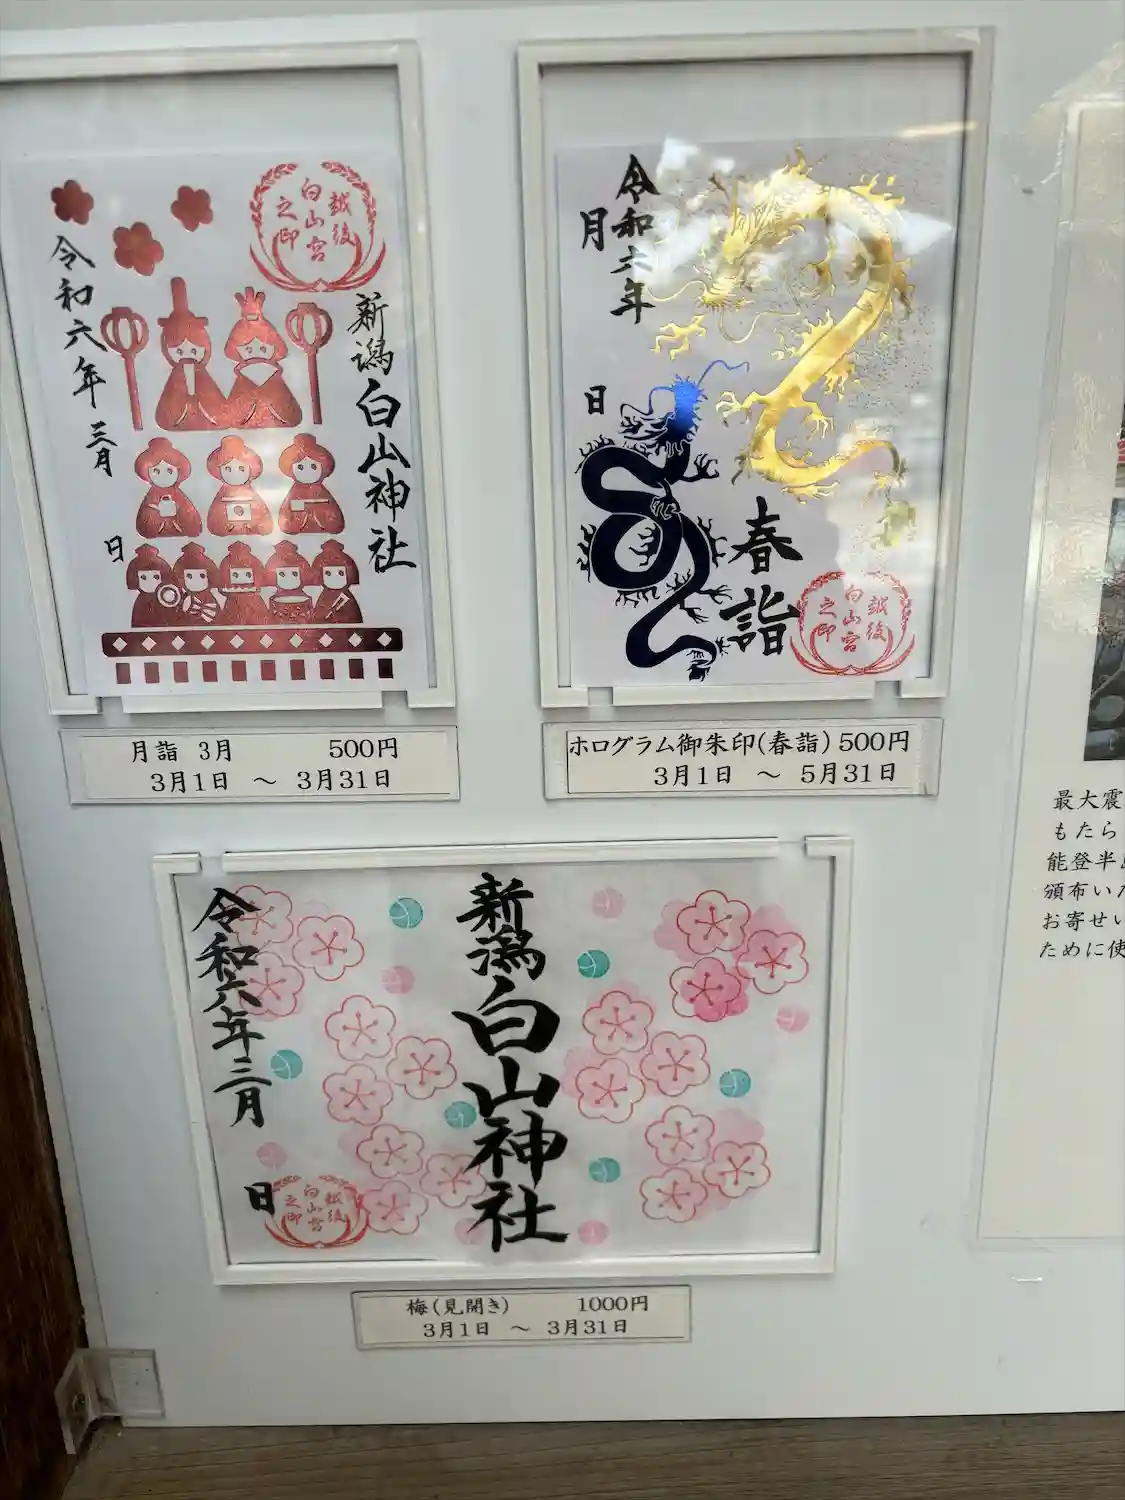 令和六年 三月
日
新潟白山神社
越後
白山宮
之印
月詣 3月 500円
3月1日 ～ 3月31日
令和六年
月
日
春詣
越後
白山宮
之印
ホログラム御朱印(春詣) 500円
3月1日 ～ 5月31日
新潟白山神社
令和六年三月
日
越後
白山宮
之印
梅(見開き) 1000円
3月1日 ～ 3月31日
最大震
もたら
能登半
頒布い
お寄せい
ために使